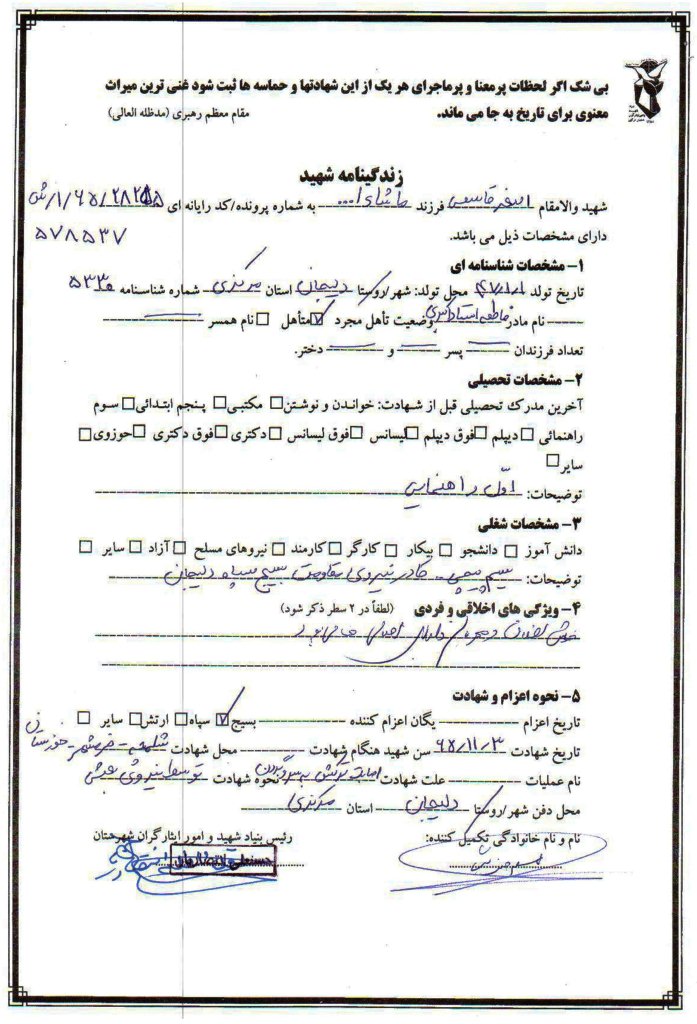 بی شک اگر لحظات پرمعنا و پرماجرای هر یک از این شهادتها و حماسه ها ثبت شود غنی ترین میراث
معنوی برای تاریخ به جا می ماند. مقام معظم رهبری (مدظله العالی)
زندگینامه شهید
شهید والامقام اصغر قاسمی فرزند ماشاءا... به شماره پرونده/کد رایانه ای
۵۷۸۵۳۷
دارای مشخصات ذیل می باشد.
۱– مشخصات شناسنامه ای
تاریخ تولد ۴۷/۱/۱ محل تولد: شهر/روستا دلیجان استان مرکزی شماره شناسنامه ۵۳۳۰
نام مادر فاطمه وضعیت تأهل مجرد ☑ متأهل ☐ نام همسر
تعداد فرزندان پسر و دختر.
۲– مشخصات تحصیلی
آخرین مدرک تحصیلی قبل از شهادت: خواندن و نوشتن☐ مکتبی☐ پنجم ابتدائی☐ سوم
راهنمائی ☐ دیپلم ☐فوق دیپلم ☐لیسانس ☐فوق لیسانس ☐دکتری ☐فوق دکتری ☐حوزوی ☐
سایر☐
توضیحات: اول راهنمایی
۳– مشخصات شغلی
دانش آموز ☐ دانشجو ☐ بیکار ☐ کارگر ☐ کارمند ☐ نیروهای مسلح ☐ آزاد ☐ سایر ☐
توضیحات: بسیجی – کادر نیروی مقاومت بسیج سپاه دلیجان
۴– ویژگی های اخلاقی و فردی (لطفاً در ۲ سطر ذکر شود)
خوش اخلاق
۵– نحوه اعزام و شهادت
تاریخ اعزام یگان اعزام کننده بسیج☑ سپاه☐ ارتش☐ سایر ☐
تاریخ شهادت ۶۵/۱۱/۳ سن شهید هنگام شهادت محل شهادت شلمچه – خرمشهر – خوزستان
نام عملیات علت شهادت اصابت ترکش به سر و گردن نحوه شهادت توسط نیروی بعثی
محل دفن شهر/روستا دلیجان استان مرکزی
نام و نام خانوادگی تکمیل کننده: رئیس بنیاد شهید و امور ایثارگران شهرستان